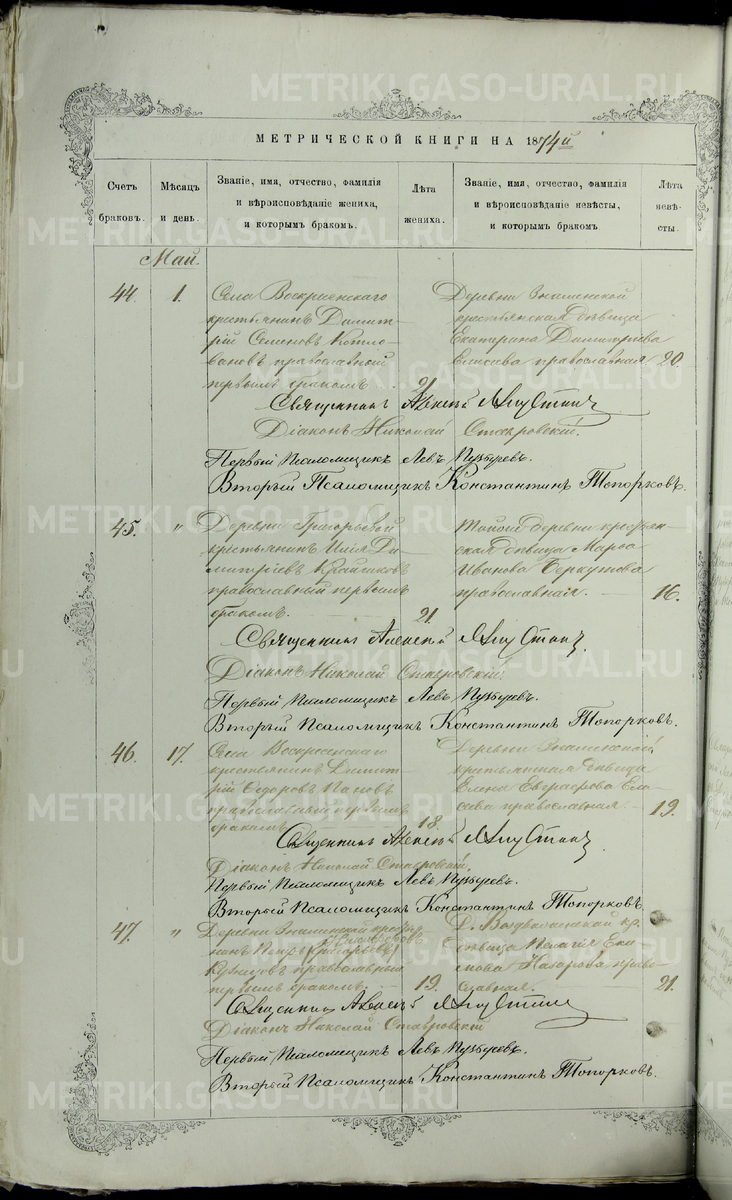 METRIKI.GASO-URAL.RU
МЕТРИЧЕСКОЙ КНИГИ НА 1874й
Счетъ браковъ.
Мѣсяцъ и день.
Званіе, имя, отчество, фамилія
и вѣроисповѣданіе жениха,
и которымъ бракомъ.
Лѣта жениха.
Званіе, имя, отчество, фамилія
и вѣроисповѣданіе невѣсты,
и которымъ бракомъ
Лѣта невѣсты.
Май.
44. 1.
Села Воскресенскаго
крестьянинъ Димит-
рій Семеновъ Котло-
вановъ православный
первымъ бракомъ. 21.
Деревни Знаменской
крестьянская дѣвица
Екатерина Димитріева
православная 20.
Священникъ Алексѣй
Діаконъ Николай Ставровскій.
Первый Псаломщикъ Левъ Пузыревъ.
Второый Псаломщикъ Константинъ Топорковъ.
45. "
Деревни Григорьевой
крестьянинъ Илія Ди-
митріевъ
православный первымъ
бракомъ. 21.
Тойже деревни крестьян-
ская дѣвица Марѳа
Иванова Беркутова
православная. 16.
Священникъ Алексѣй
Діаконъ Николай Ставровскій.
Первый Псаломщикъ Левъ Пузыревъ.
Вторый Псаломщикъ Константинъ Топорковъ.
46. 17.
Села Воскресенскаго
крестьянинъ Димит-
рій Ѳедоровъ Пановъ
православный первымъ
бракомъ 18.
Деревни Знаменской
крестьянская дѣвица
Елена Евграфова Ели-
сова православная 19.
Священникъ Алексѣй
Діаконъ Николай Ставровскій.
Первый Псаломщикъ Левъ Пузыревъ.
Вторый Псаломщикъ Константинъ Топорковъ.
47. "
Деревни Знаменской крестья-
нинъ Петръ
православный
первымъ бракомъ. 19.
Д. Воздвиженской кр.
дѣвица Пелагія Еки-
мова Назарова право-
славная. 21.
Священникъ Алексѣй
Діаконъ Николай Ставровскій
Первый Псаломщикъ Левъ Пузыревъ.
Вторый Псаломщикъ Константинъ Топорковъ.